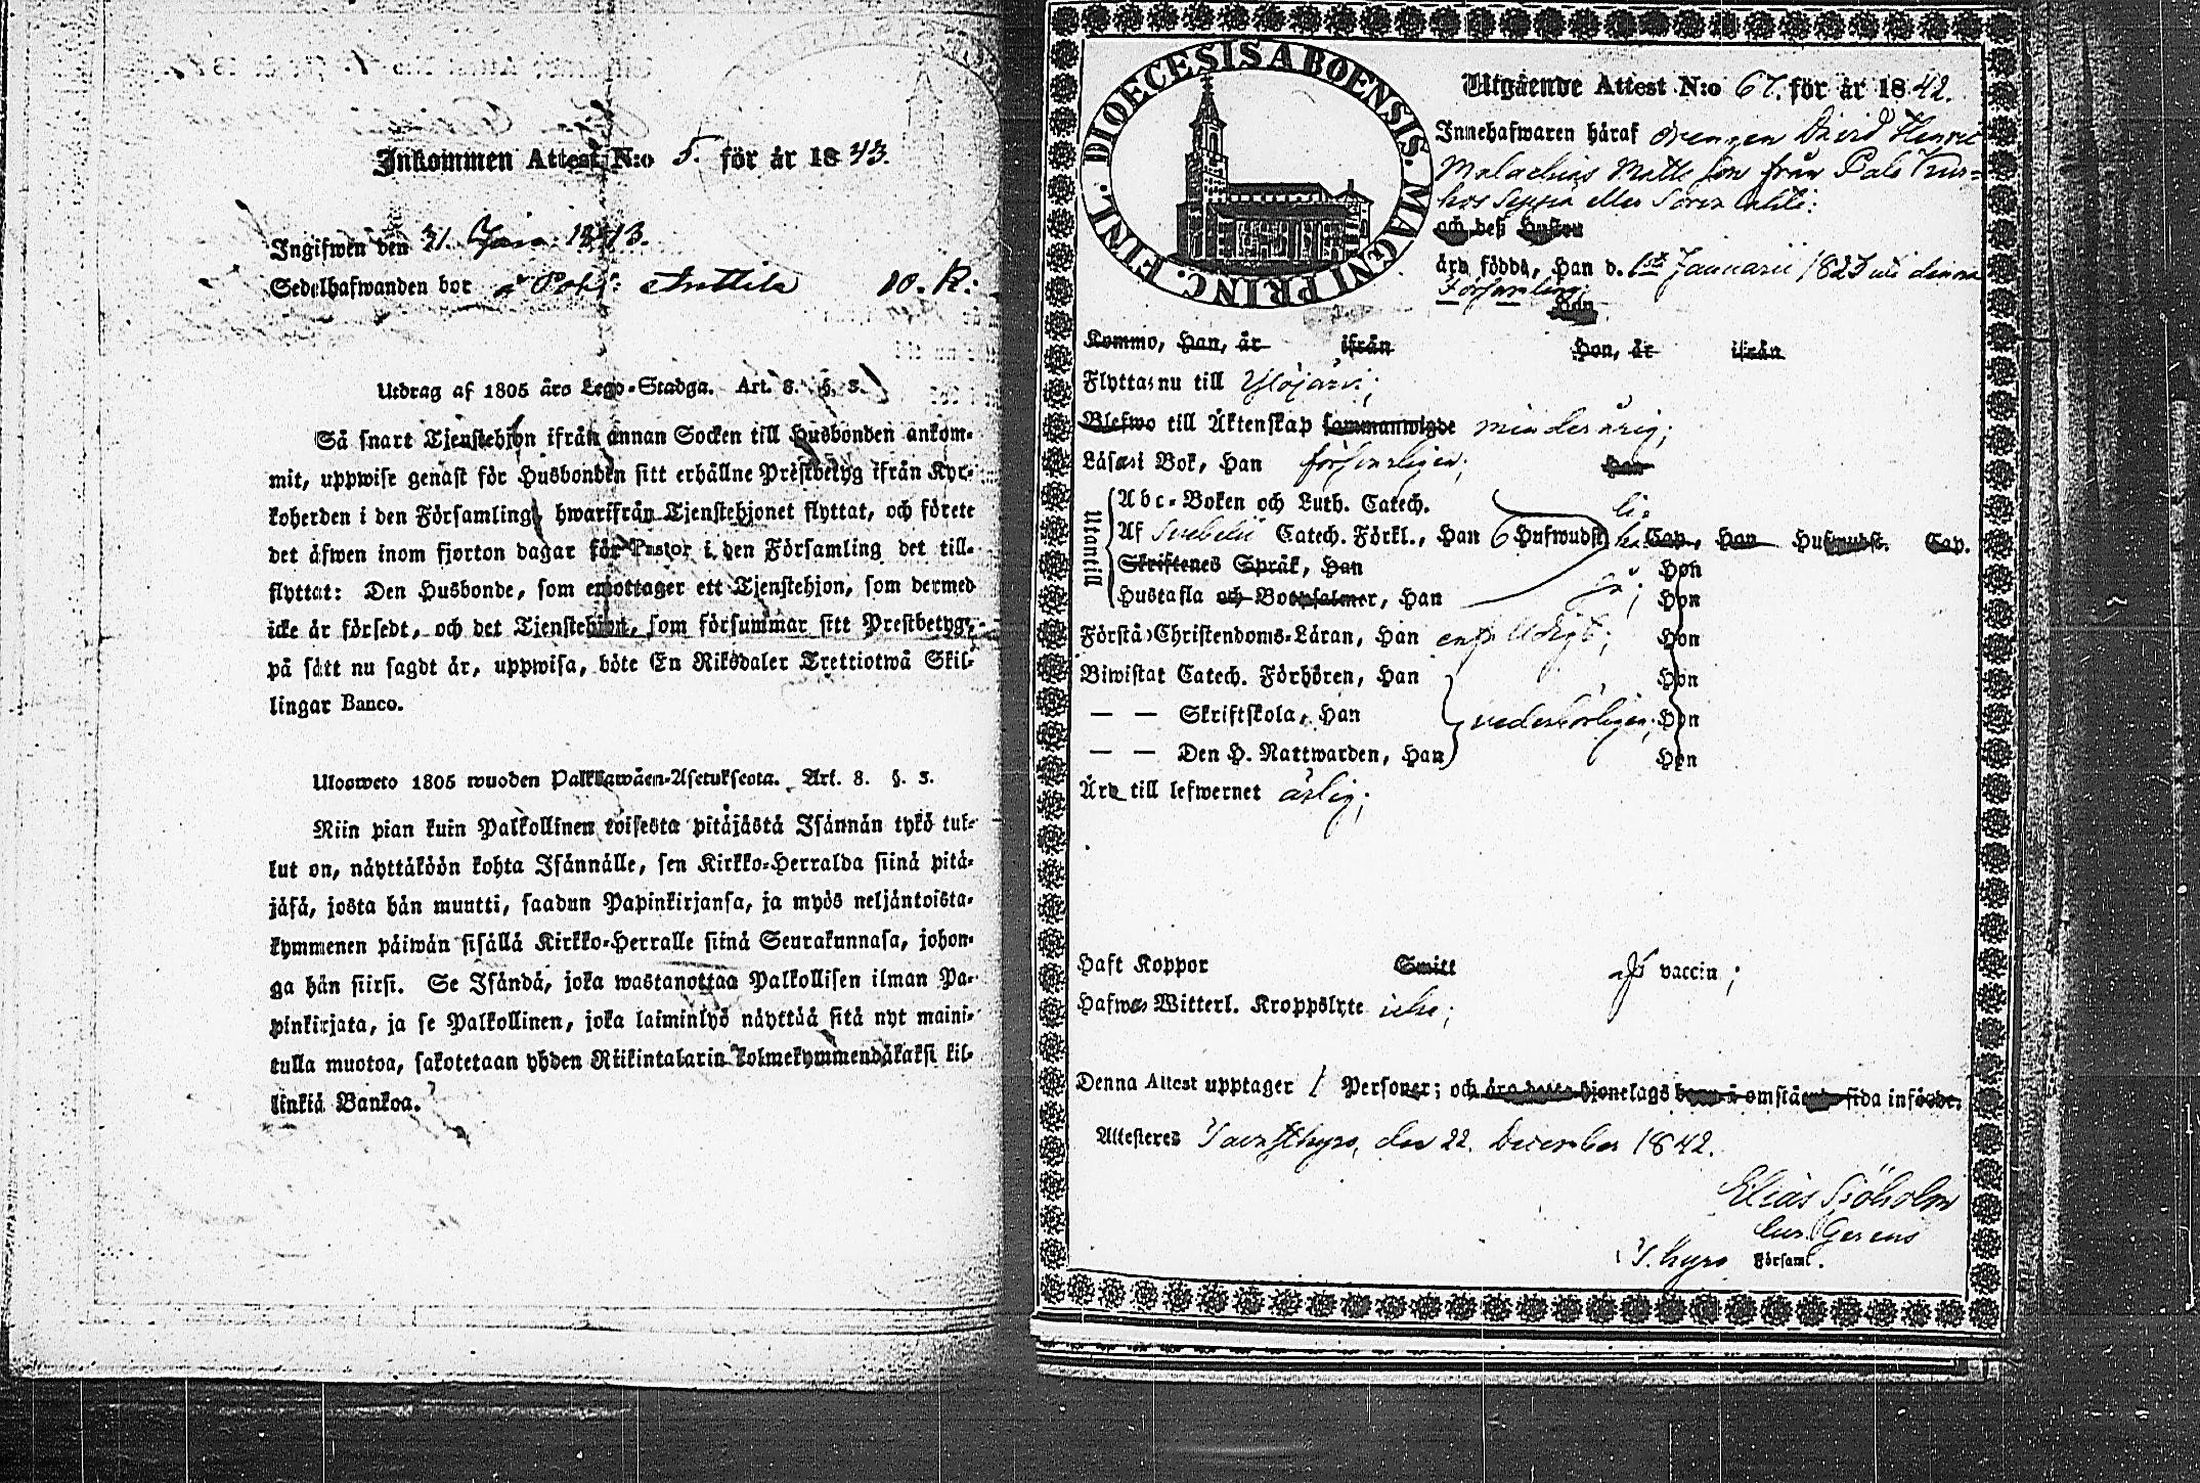 Inkommen Attest N:o 5. för år 1843.
Ingifwen den 31. 1843.
Sedelhafwanden bor
Utdrag af 1805 års Lego-Stadga. Art. 8. §. 3.
Så snart Tjenstehjon ifrån annan Socken till Husbonden ankom-
mit, uppwise genast för Husbonden sitt erhållne Prestbetyg ifrån Kyr-
koherden i den Församling, hwarifrån Tjenstehjonet flyttat, och förete
det äfwen inom fjorton dagar för Pastor i den Församling det till-
flyttat: Den Husbonde, som emottager ett Tjenstehjon, som dermed
icke är försedt, och det Tjenstehjon, som försummar sitt Prestbetyg,
på sätt nu sagdt är, uppwisa, böte En Riksdaler Trettiotwå Skil-
lingar Banco.
Ulosweto 1805 wuoden Palkkawäen-Asetuksesta. Art. 8. §. 3.
Niin pian kuin Palkollinen toisesta pitäjästä Isännän tykö tul-
lut on, näyttäköön kohta Isännälle, sen Kirkko-Herralda siinä pitä-
jäsä, josta hän muutti, saadun Papinkirjansa, ja myös neljäntoista-
kymmenen päiwän sisällä Kirkko-Herralle siinä Seurakunnasa, johon-
ga hän siirsi. Se Isändä, joka wastanottaa Palkollisen ilman Pa-
pinkirjata, ja se Palkollinen, joka laiminlyö näyttää sitä nyt maini-
tulla muotoa, sakotetaan yhden Riikintalarin kolmekymmendäkaksi kil-
linkiä Bankoa.
DIOECESIS ABOENSIS. MAGNI PRINC. FINL.
Utgående Attest N:o 67. för år 1842.
Innehafwaren häraf drengen David Henric
Malachias Matts son från
eller
och deß Hustru
äro födde, Han d. 1st Januarii 1823 uti denna
Församling; Hon
Kommo, Han, år ifrån Hon, år ifrån
Flytta nu till Ylöjärvi;
Blefwo till Äktenskap sammanwigde minderårig;
Läsa i Bok, Han försvarligen; Hon
Utantill
Abc-Boken och Luth. Catech.
Af Svebelii Catech. Förkl., Han 6 Hufwudst. Cap., Hon Hufwudst. Cap.
Skriftenes Språk, Han Hon
Hustafla och Botpsalmer, Han Hon
Förstå Christendoms-Läran, Han enfaldigt; Hon
Biwistat Catech. Förhören, Han Hon
— — Skriftskola, Han vederbörligen; Hon
— — Den H. Nattwarden, Han Hon
Äro till lefwernet ärlig;
Haft Koppor Smitt vaccin;
Hafwa Witterl. Kroppslyte icke;
Denna Attest upptager 1 Personer; och äro detta hjonelags barn å omstående sida införde.
Attesteres Tavastkyro, den 22. December 1842.
Elias Sjöholm
Cur. Gerens
T. kyro Församl.